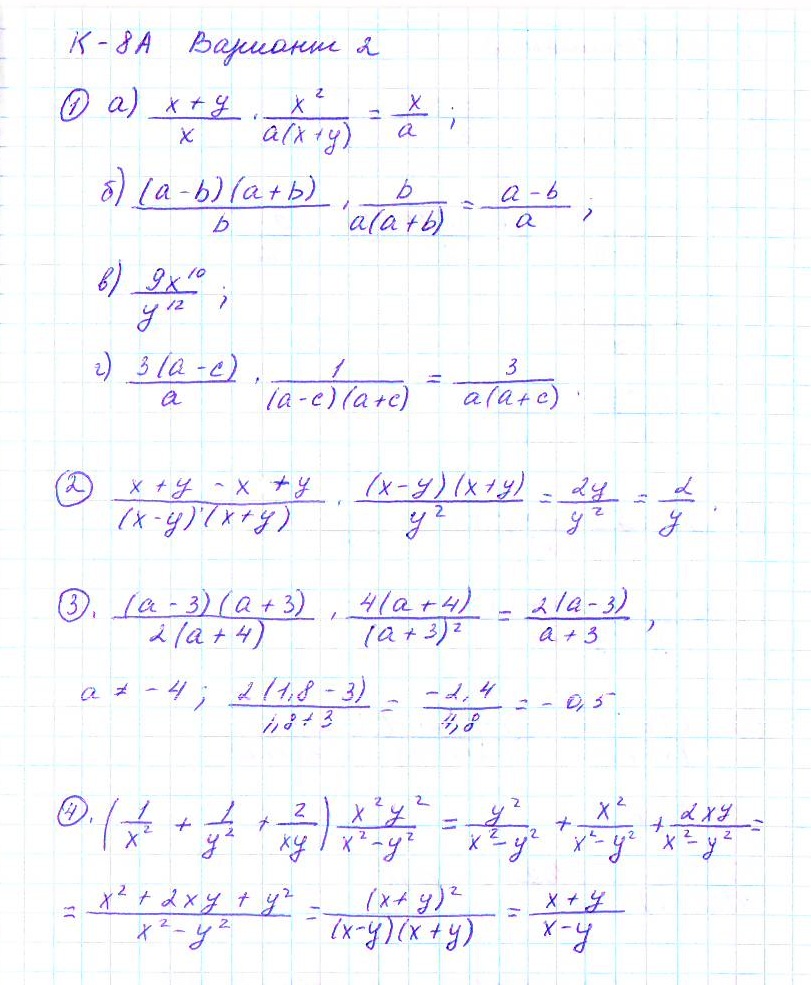 К-8А Вариант 2
① а) (x+y)/x · x²/(a(x+y)) = x/a ;
б) ((a-b)(a+b))/b · b/(a(a+b)) = (a-b)/a ;
в) 9x¹⁰/y¹² ;
г) (3(a-c))/a · 1/((a-c)(a+c)) = 3/(a(a+c)) .
② (x+y-x+y)/((x-y)(x+y)) · ((x-y)(x+y))/y² = 2y/y² = 2/y .
③. ((a-3)(a+3))/(2(a+4)) · (4(a+4))/(a+3)² = (2(a-3))/(a+3) ,
a ≠ -4 ; (2(1,8-3))/(1,8+3) = (-2,4)/(4,8) = -0,5.
④. (1/x² + 1/y² + 2/xy) x²y²/(x²-y²) = y²/(x²-y²) + x²/(x²-y²) + 2xy/(x²-y²) =
= (x²+2xy+y²)/(x²-y²) = (x+y)²/((x-y)(x+y)) = (x+y)/(x-y)